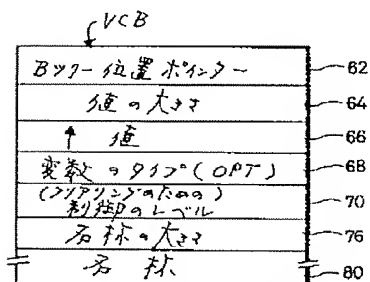 VCB
Bツリー位置ポインター
62
値の大きさ
64
↑ 値
66
変数のタイプ(OPT)
68
(クリアリングのための)
制御のレベル
70
名称の大きさ
76
名称
80